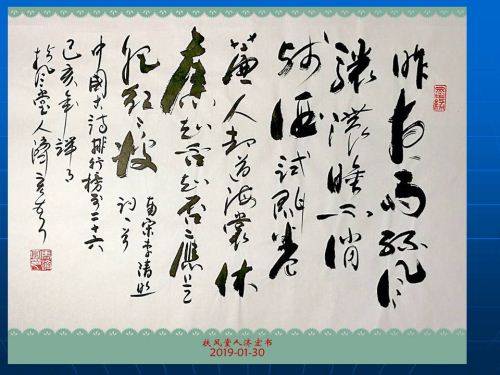 昨夜雨疏风
骤浓睡不消
残酒试问卷
簾人却道海棠依
舊知否知否應是
肥红瘦
南宋李清照
词一首
中國古詩排行榜第二十六
己亥年
扶風堂人濟宏书
扶风堂人济宏书
2019-01-30